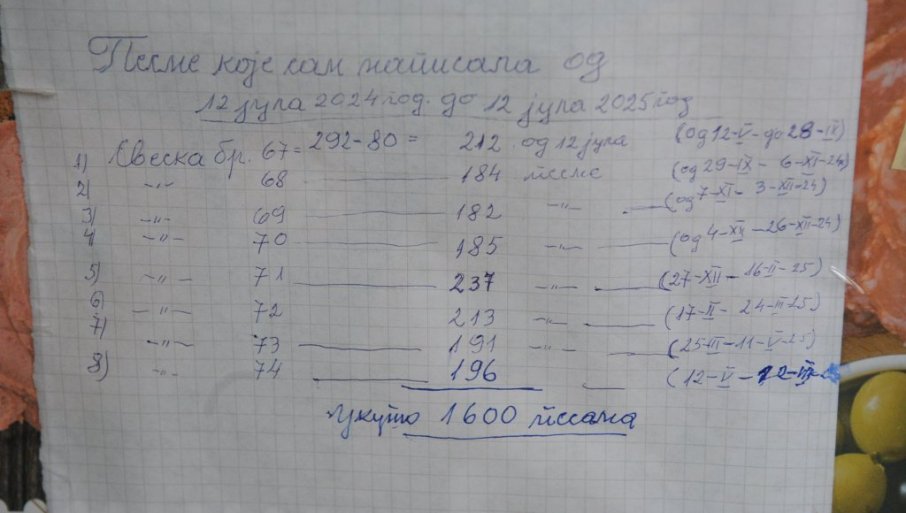 Песме које сам написала од
12 јула 2024 год. до 12 јула 2025 год
1) Свеска бр. 67 = 292-80 = 212 од 12 јула (од 12-V-до 28-IX)
2) -"- 68 184 песме (од 29-IX - 6-XI-24)
3) -"- 69 182 -"- (од 7-XI- 3-XII-24)
4) -"- 70 185 -"- (од 4-XII-26-XII-24)
5) -"- 71 237 -"- (27-XII-16-II-25)
6) -"- 72 213 -"- (17-II- 24-III-25)
7) -"- 73 191 -"- (25-III-11-V-25)
8) -"- 74 196 (12-V-
укупно 1600 песама